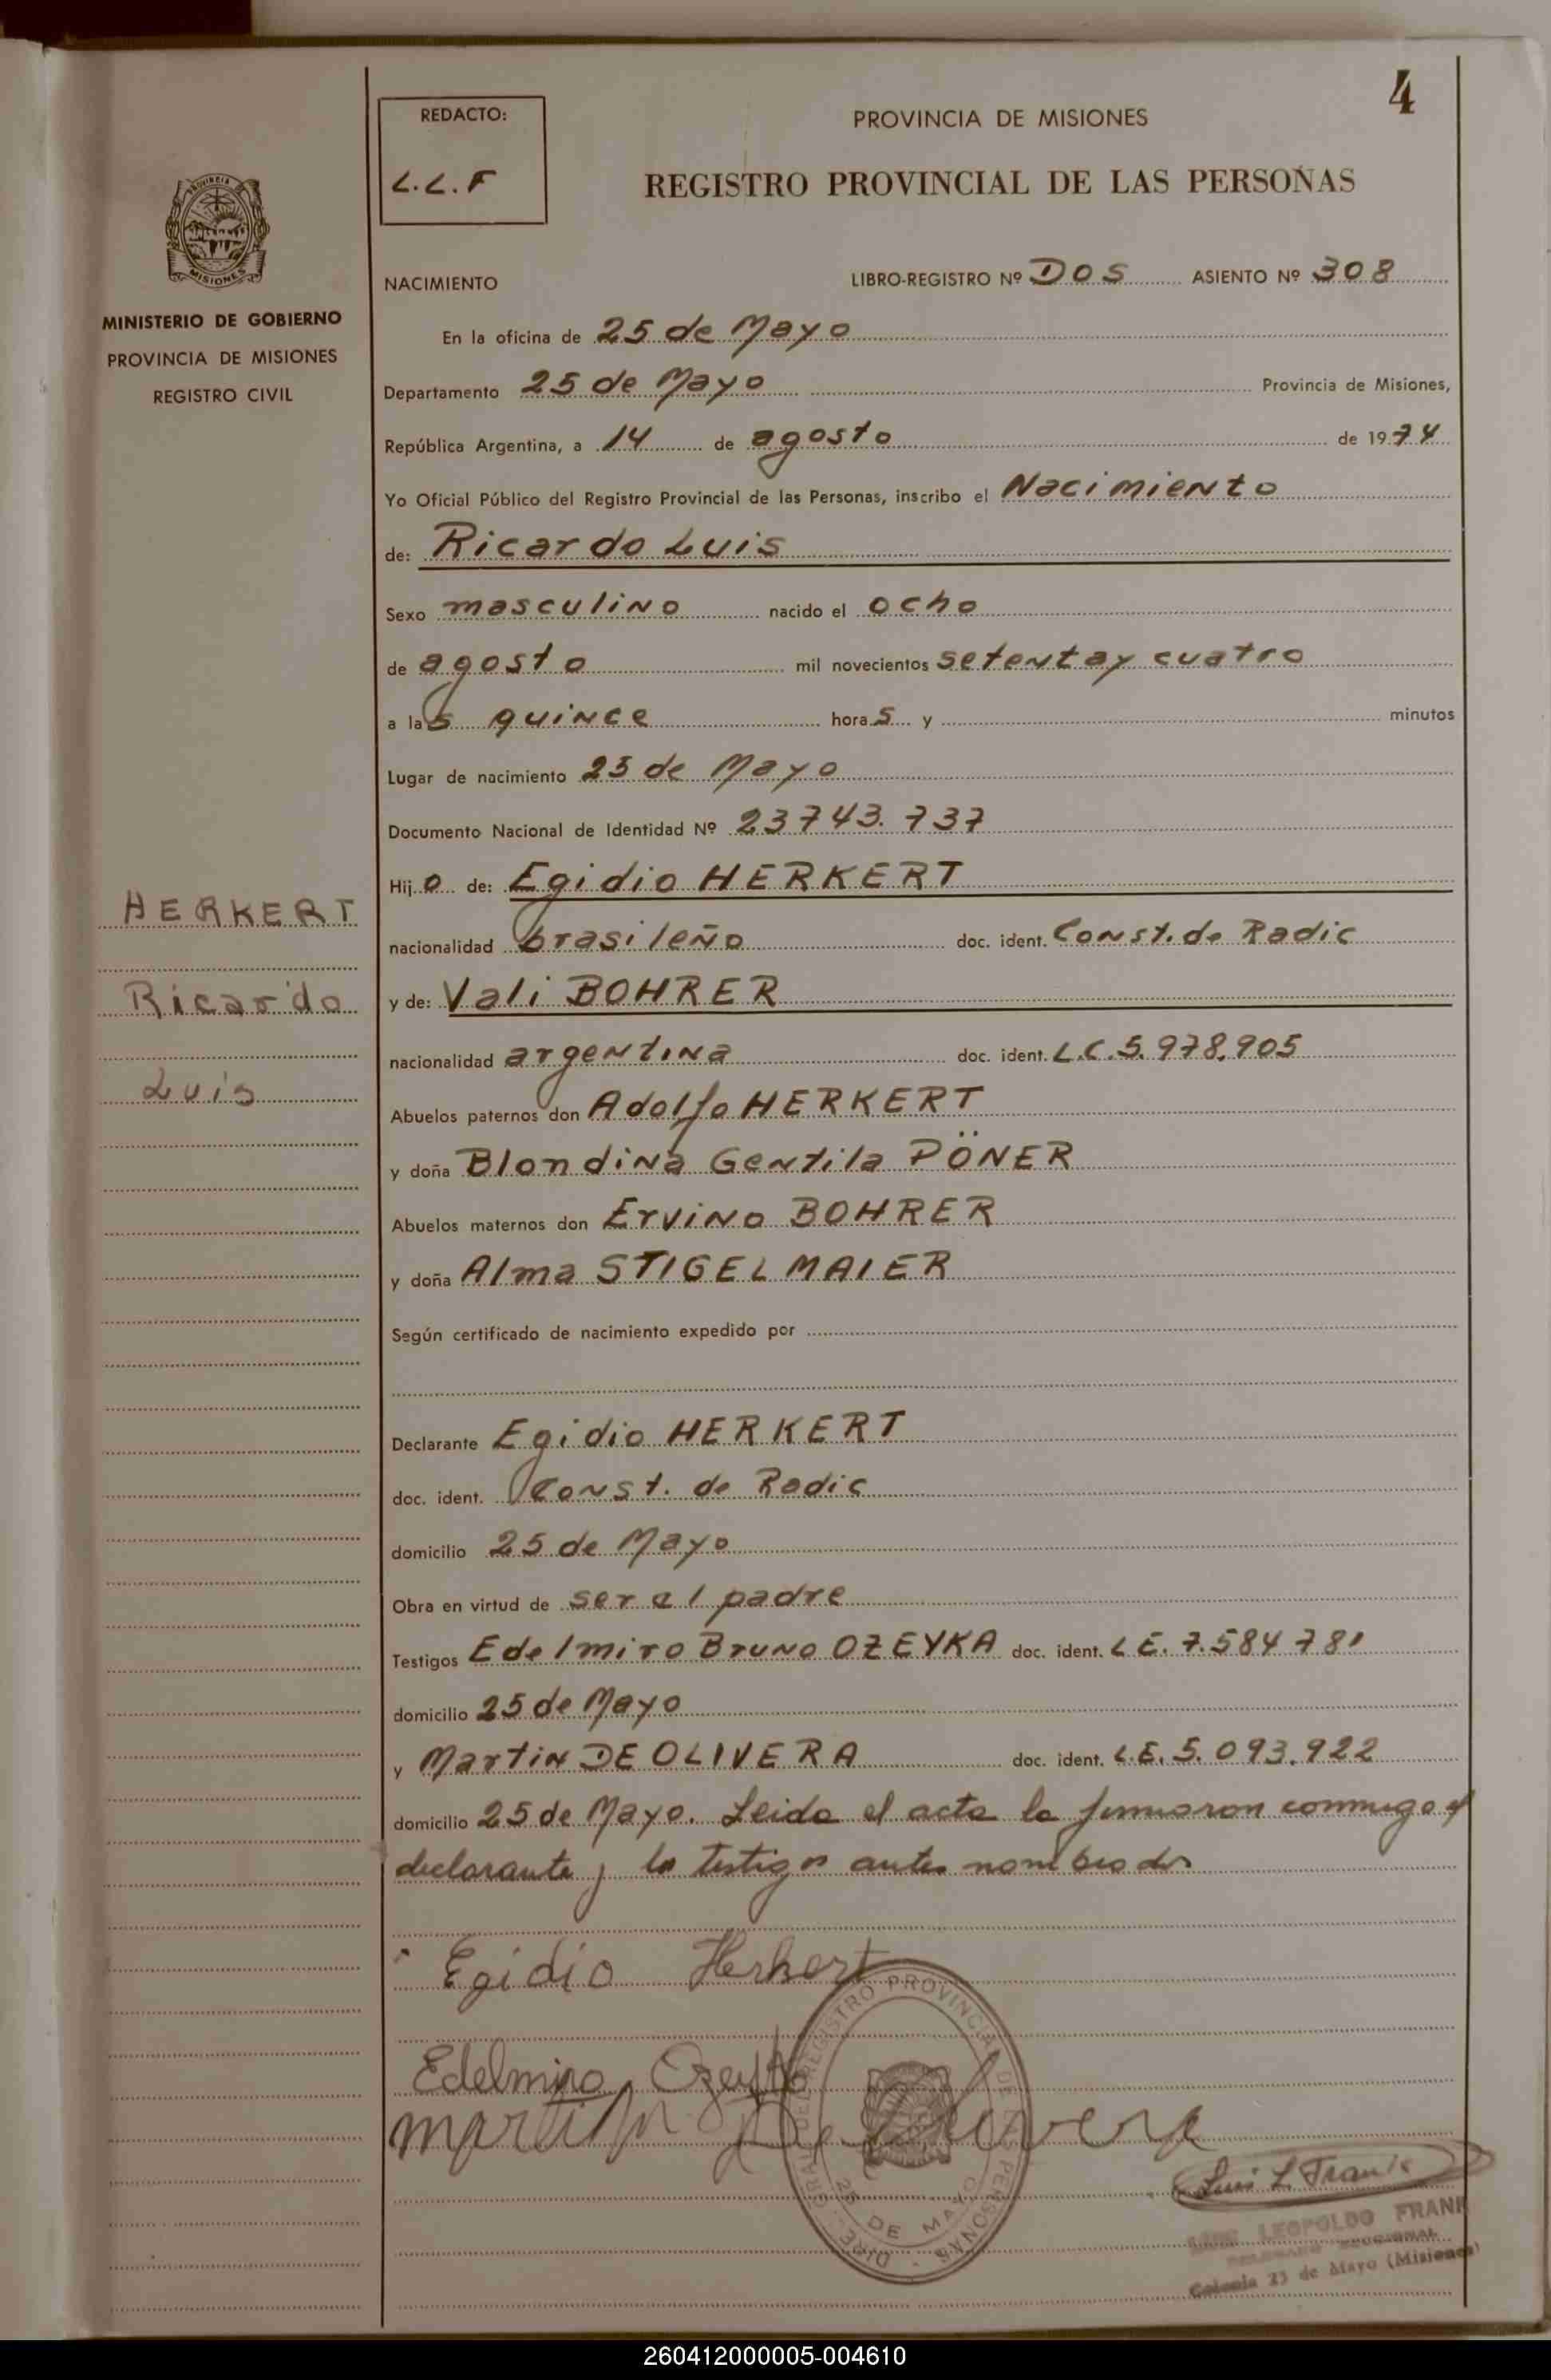 4
REDACTO:
L.L.F
PROVINCIA DE MISIONES
REGISTRO PROVINCIAL DE LAS PERSONAS
PROVINCIA DE
MISIONES
MINISTERIO DE GOBIERNO
PROVINCIA DE MISIONES
REGISTRO CIVIL
NACIMIENTO LIBRO-REGISTRO Nº DOS ASIENTO Nº 308
En la oficina de 25 de Mayo
Departamento 25 de Mayo Provincia de Misiones,
República Argentina, a 14 de agosto de 1974
Yo Oficial Público del Registro Provincial de las Personas, inscribo el Nacimiento
de: Ricardo Luis
Sexo masculino nacido el ocho
de agosto mil novecientos setenta y cuatro
a las quince horas y minutos
Lugar de nacimiento 25 de Mayo
Documento Nacional de Identidad Nº 23743.737
Hijo de: Egidio HERKERT
HERKERT
nacionalidad brasileño doc. ident. Const. de Radic
Ricardo
y de: Vali BOHRER
nacionalidad argentina doc. ident. L.C. 5.978.905
Luis
Abuelos paternos don Adolfo HERKERT
y doña Blondina Gentila PÖNER
Abuelos maternos don Ervino BOHRER
y doña Alma STIGELMAIER
Según certificado de nacimiento expedido por
Declarante Egidio HERKERT
doc. ident. Const. de Radic
domicilio 25 de Mayo
Obra en virtud de ser el padre
Testigos Edelmiro Bruno OZEYKA doc. ident. L E. 7.584 781
domicilio 25 de Mayo
y Martin DE OLIVERA doc. ident. L.E. 5.093.922
domicilio 25 de Mayo. Leida el acta la firmaron conmigo el
declarante y los testigos antes nombrados
Egidio Herkert
Edelmiro Ozeyka
martin De Olivera
DIRE. GRAL DEL REGISTRO PROVINCIAL DE LAS PERSONAS
25 DE MAYO
Luis L. Frank
LUIS LEOPOLDO FRANK
Colonia 25 de Mayo (Misiones)
260412000005-004610